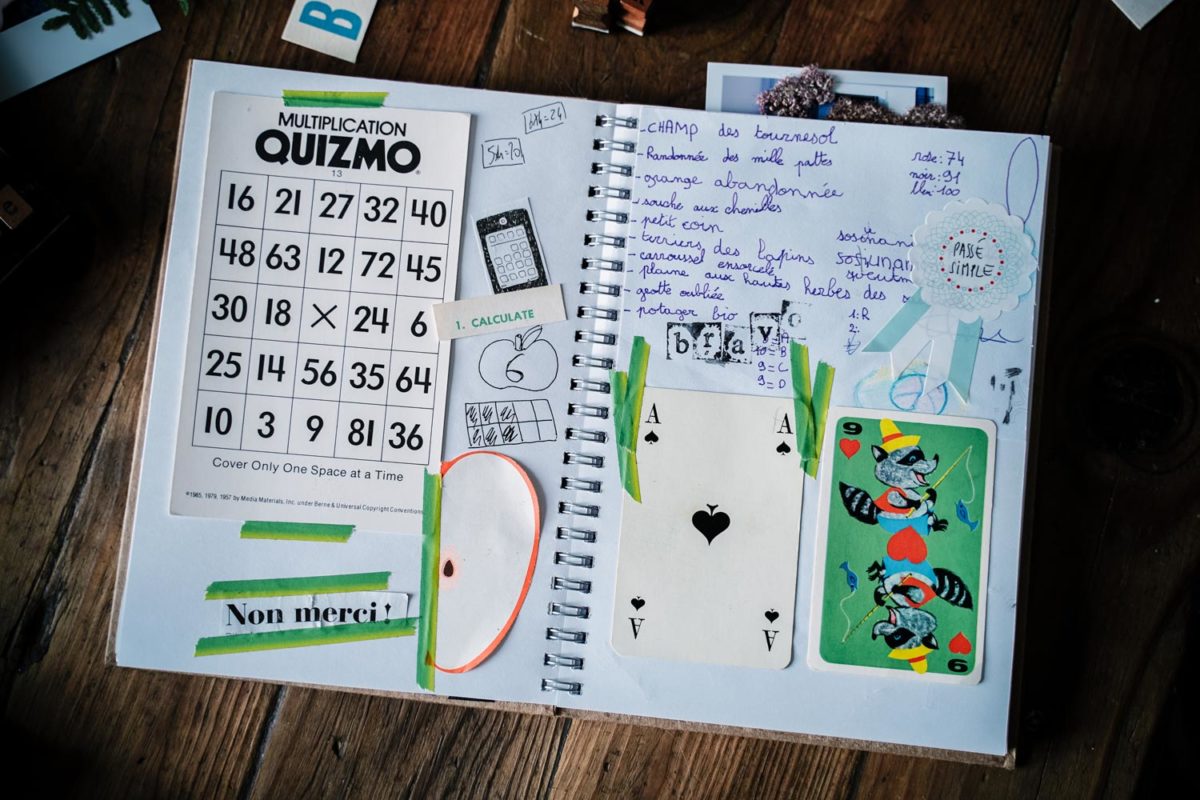 B
MULTIPLICATION
QUIZMO®
13
16 21 27 32 40
48 63 12 72 45
30 18 × 24 6
25 14 56 35 64
10 3 9 81 36
Cover Only One Space at a Time
©1965, 1979, 1957 by Media Materials, Inc. under Berne & Universal Copyright Conventions
Non merci !
1. CALCULATE
6
- CHAMP des tournesol
- Randonnée des mille pattes
- orange abandonnée
- souche aux chenilles
- petit coin
- terriers des lapins
- carroussel ensorcelé
- plaine aux hautes herbes des
- grotte oubliée
- potager bio
rose: 74
noir: 91
bleu: 100
PASSE
SIMPLE
1: R
2:
bravo
10 = B
9 = C
9 = D
A
A
A
A
9
9
e